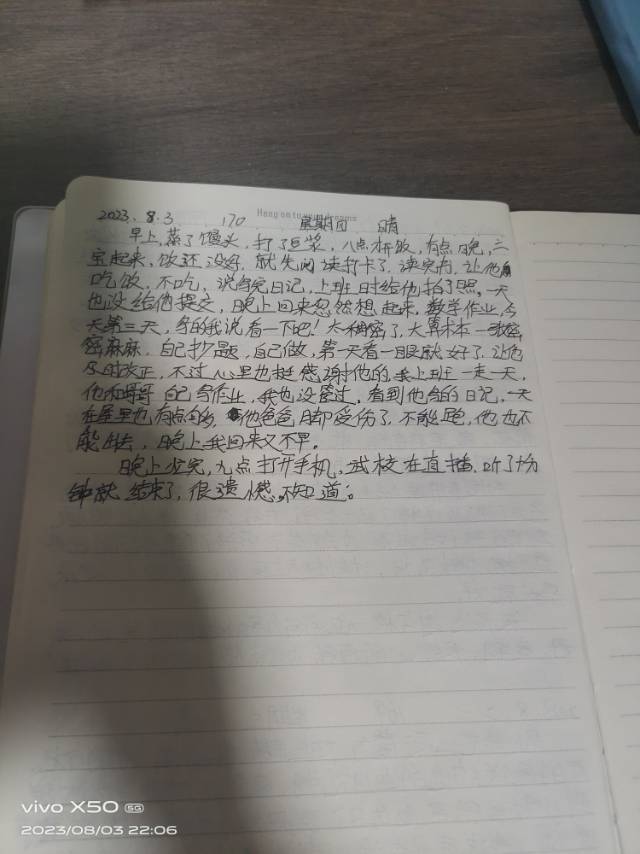 Hang on to your dreams
2023.8.3 170 星期四 晴
早上,蒸了馒头,打了豆浆,八点才开饭,有点晚,三
宝起来,饭还没好,就先阅读打卡了,读完内,让他
吃饭,不吃,说写完日记,上班时给他拍了照,一天
也没给他提交,晚上回来忽然想起来,数学作业,今
天第三天,写的我说看一下吧!太稠密了,大算术本一张密
密麻麻,自己抄题,自己做,第一天看一眼就好了,让他
及时改正,不过心里也挺感谢他的,我上班一走一天,
他和哥哥自己写作业,我也没管过,看到他写的日记,一天
在屋里也有点的多,他爸爸脚却受伤了,不能跑,他也不
能出去,晚上我回来又不早。
晚上少完,九点打开手机,武校在直播,听了十分
钟就结束了,很遗憾,不知道。
vivo X50 5G
2023/08/03 22:06